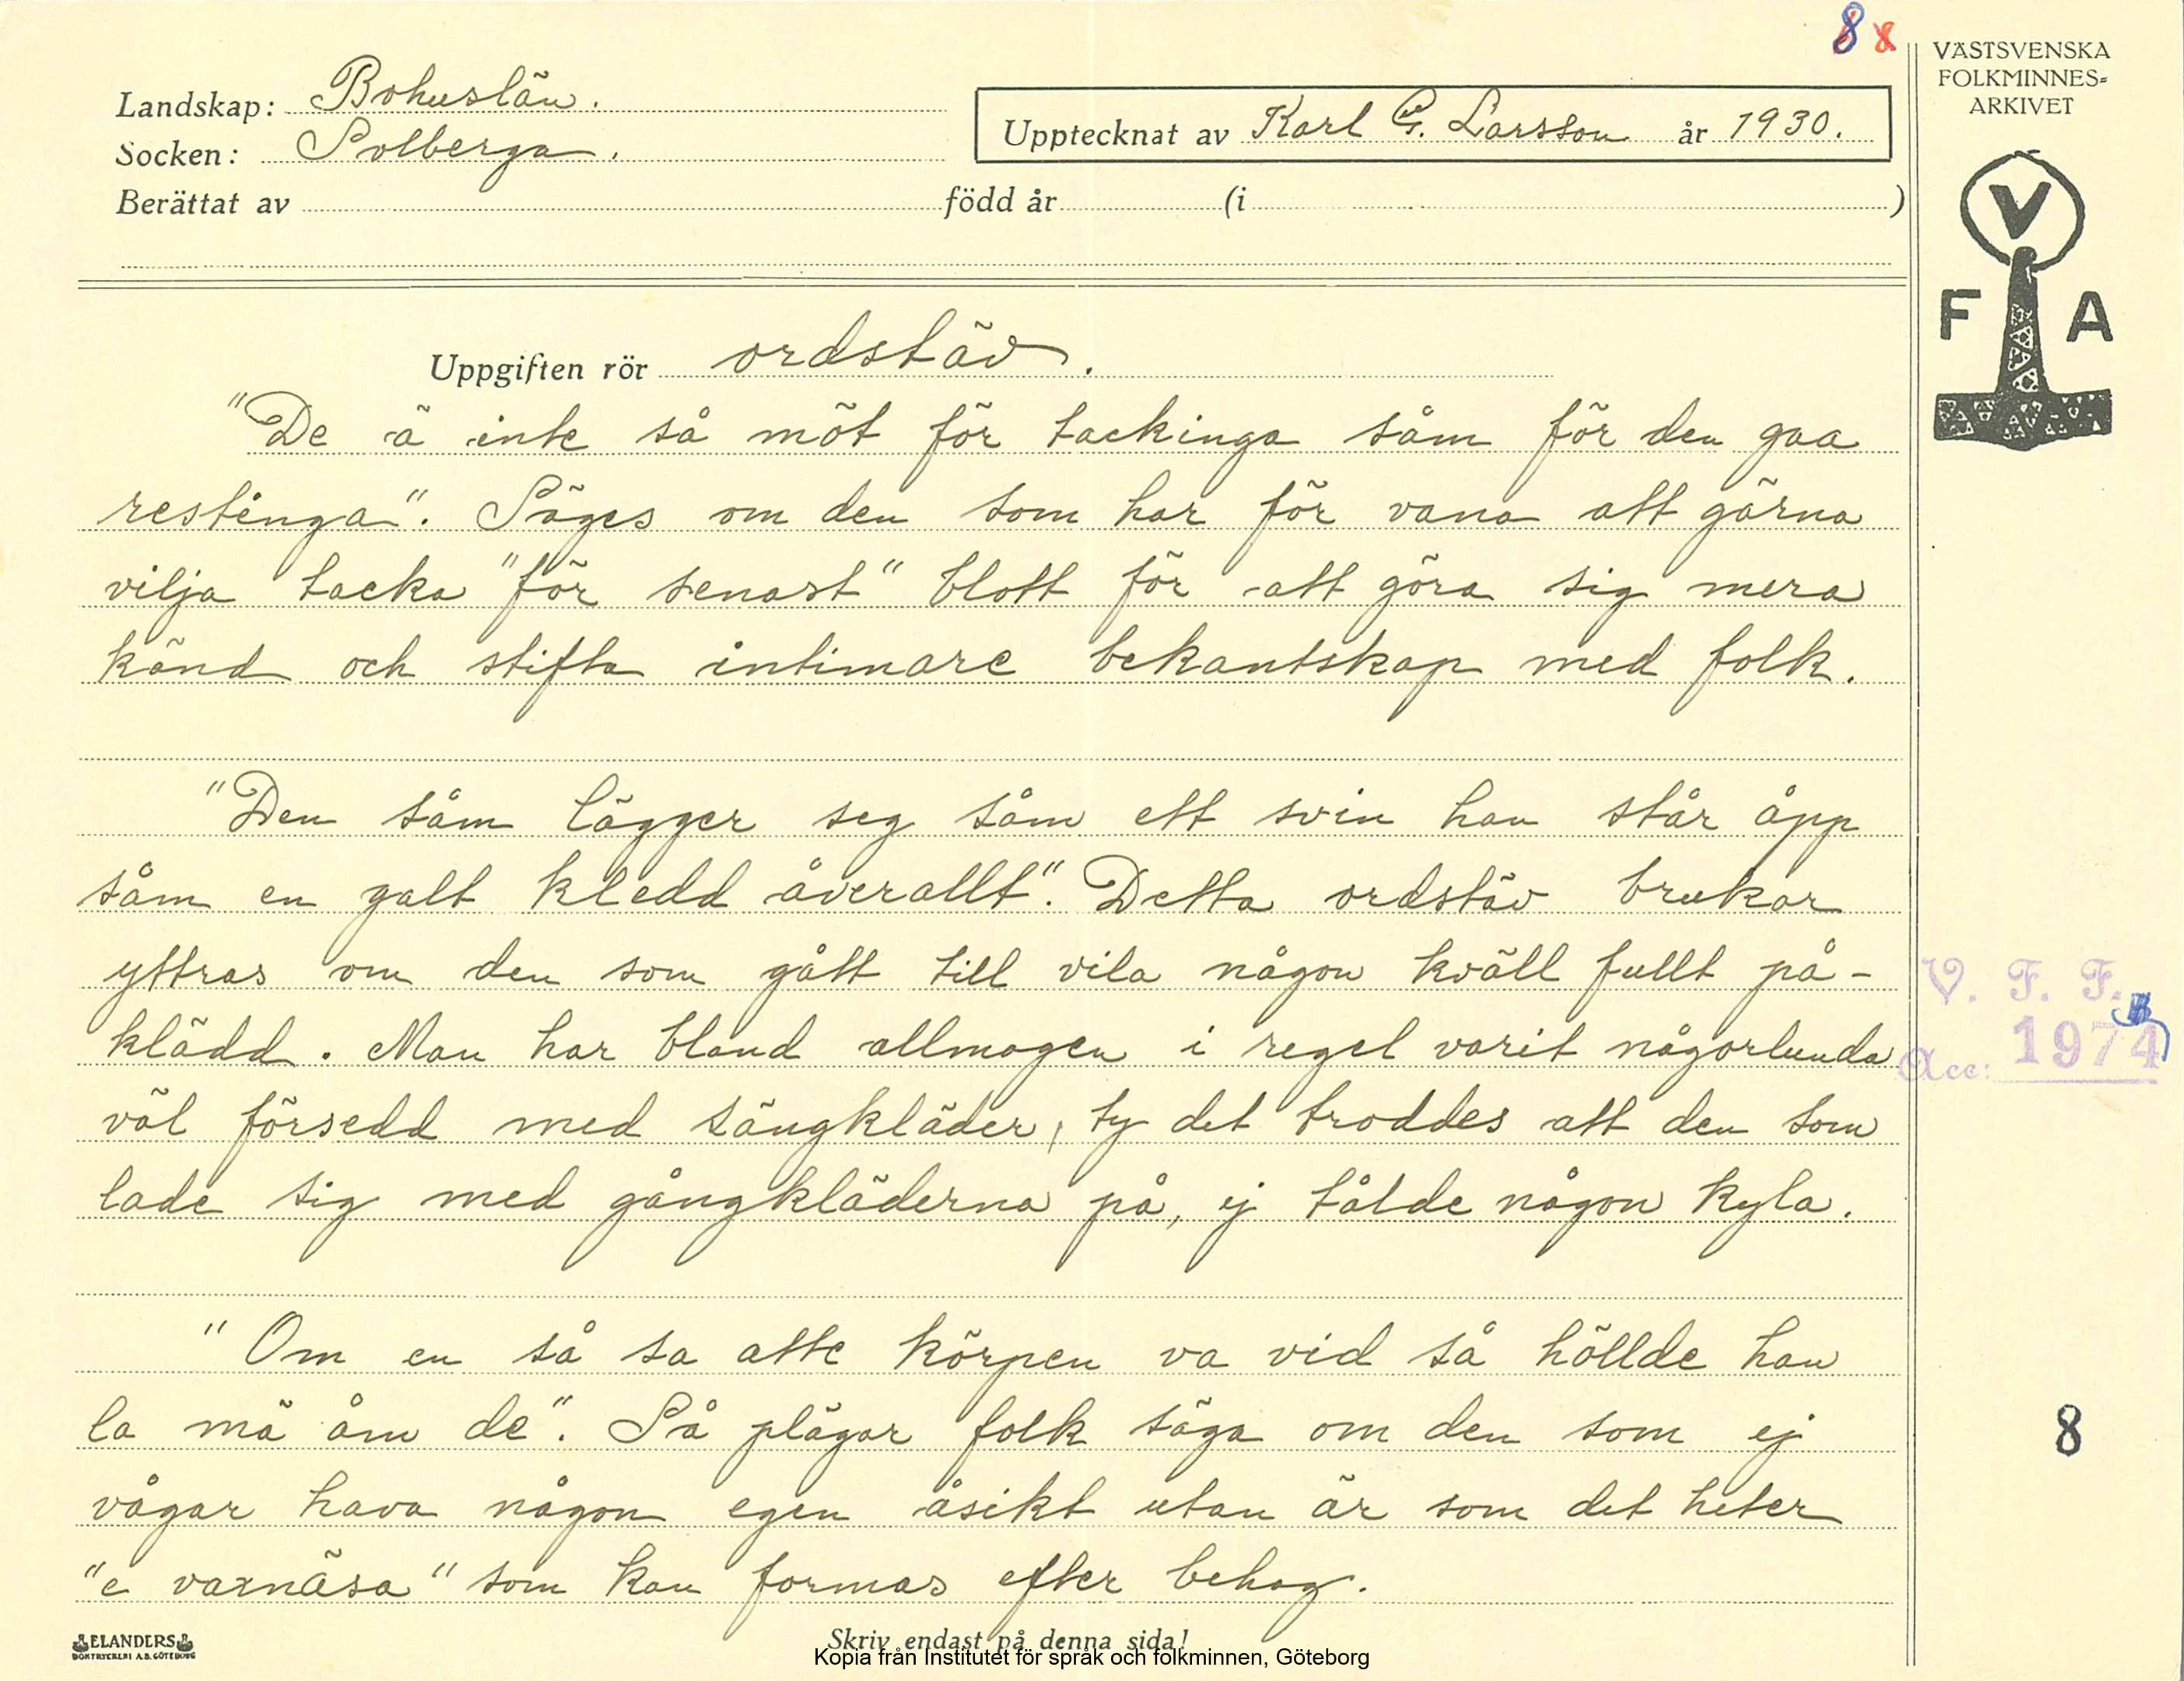 8 x
VÄSTSVENSKA
FOLKMINNES=
ARKIVET
Landskap: Bohuslän.
Socken: Solberga.
Upptecknat av Karl G. Larsson år 1930.
Berättat av född år (i )
V
F A
Uppgiften rör ordstäv.
"De ä inte så möt för tackinga såm för den gaa
restinga". Säges om den som har för vana att gärna
vilja tacka "för senast" blott för att göra sig mera
känd och stifta intimare bekantskap med folk.
"Den såm lägger seg såm ett svin han står åpp
såm en galt kledd åverallt". Detta ordstäv brukar
yttras om den som gått till vila någon kväll fullt på-
klädd. Man har bland allmogen i regel varit någorlunda
väl försedd med sängkläder, ty det troddes att den som
lade sig med gångkläderna på, ej tålde någon kyla.
V. F. F.
Acc: 1974
"Om en så sa atte körpen va vid så höllde han
la mä åm de". Så plägar folk säga om den som ej
vågar hava någon egen åsikt utan är som det heter
"e vaxnäsa" som kan formas efter behag.
8
ELANDERS
BOKTRYCKERI A.B. GÖTEBORG
Skriv endast på denna sida!
Kopia från Institutet för språk och folkminnen, Göteborg